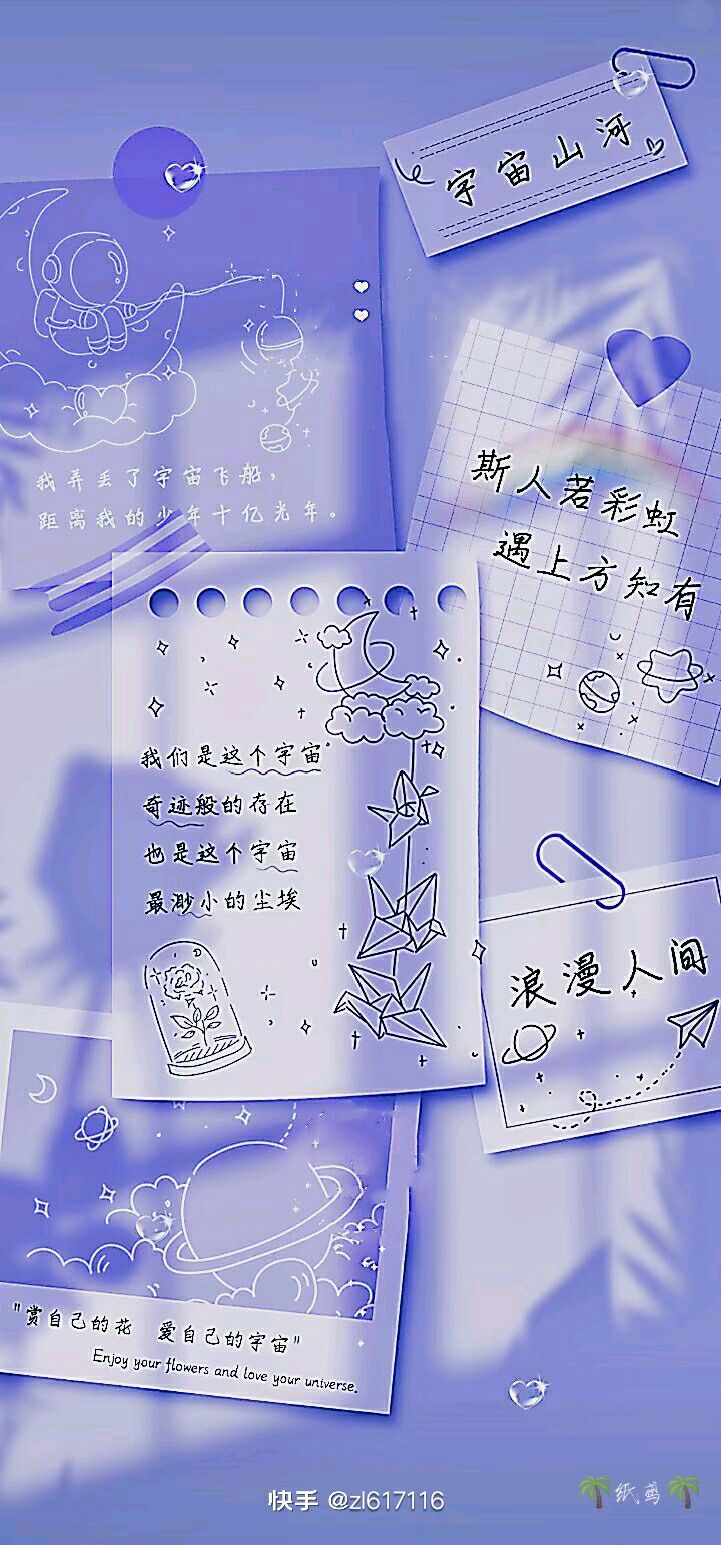 宇宙山河
我弄丢了宇宙飞船，
距离我的少年十亿光年。
斯人若彩虹
遇上方知有
我们是这个宇宙
奇迹般的存在
也是这个宇宙
最渺小的尘埃
浪漫人间
"赏自己的花 爱自己的宇宙"
Enjoy your flowers and love your universe.
快手 @zl617116
纸鸢